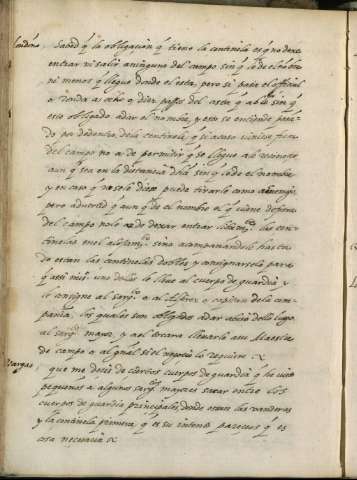 Londoño, Sabed q̃ la obligacion q̃ tiene la centinela es q̃ no dexe
entrar ni salir a ninguno del campo sin q̃ le de el nõbre
ni menos q̃ llegue donde el esta, pero si passe el official
o ronda a ocho q̃ diez passos del sin q̃
este obligado a dar el nombre, y esto se entiende
do por de dentro de la centinela q̃ si acaso viniere fuera
del campo no a de permitir q̃ se llegue a el
aun q̃ sea en la distancia dha sin q̃ le de el nombre
y en caso q̃ no se le diese puede tirarle como a enemigo
pero advertid q̃ aun q̃ de el nombre el q̃ viene de fuera
del campo no le a de dexar entrar las cen
tinelas sino acompañandole hasta
do estan las centinelas dobles y consignarselo para
q̃ assi uno dellos le lleve al cuerpo de guardia y
le consigne al sarg.to o al Alferez o capitan de la com
pañia, los quales son obligados a dar aviso dello luego
al sarg.to mayor, y a el tocara llevarle a su Maestre
de campo o al gñal si el negocio lo requiere
Vargas, que me decis de ciertos cuerpos de guardia q̃ he visto
pequenos a algunos sarg.tos mayores sacar entre los
cuerpos de guardia principales, donde estan las vanderas
y la centinela primera q̃ es su intento pareceos q̃ es
cosa necesaria